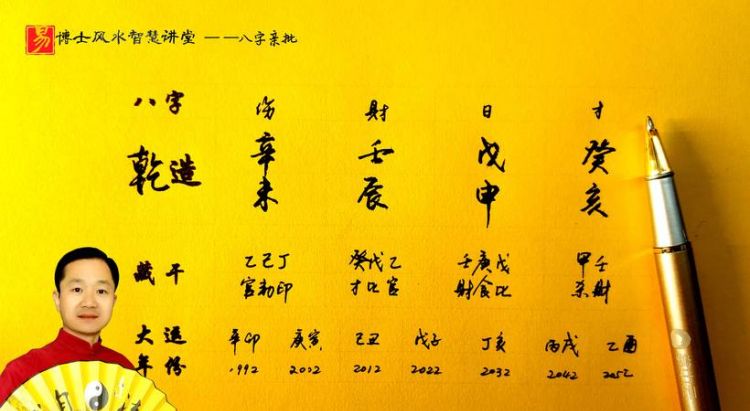 易 博士风水智慧讲堂 ——八字亲批
八字 伤 財 日 才
乾造 辛未 壬辰 戊申 癸亥
藏干 乙己丁 癸戊乙 壬庚戊 甲壬
官劫印 才比官 財食比 杀財
大运 辛卯 庚寅 己丑 戊子 丁亥 丙戌 乙酉
年份 1992 2002 2012 2022 2032 2042 2052